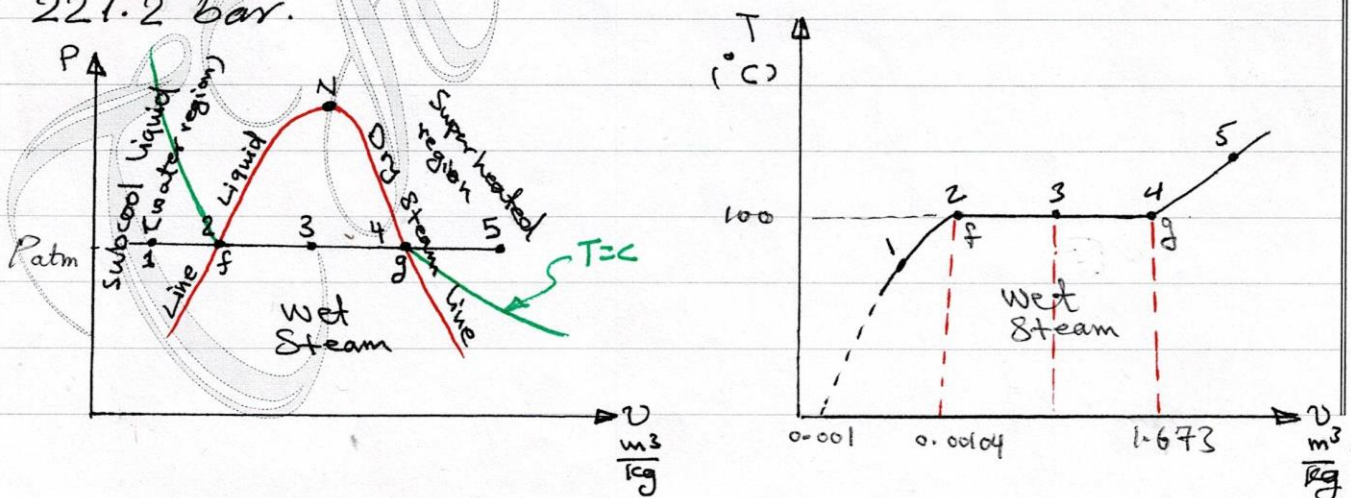 221.2 bar.
P
N
Subcool Liquid
(water region)
Liquid
Line
Dry
Steam
Line
Superheated
region
Patm
1
2
3
4
5
f
g
T=c
Wet
Steam
v
m³
kg
T
(°C)
100
1
2
3
4
5
f
g
Wet
Steam
0.001
0.00104
1.673
v
m³
kg